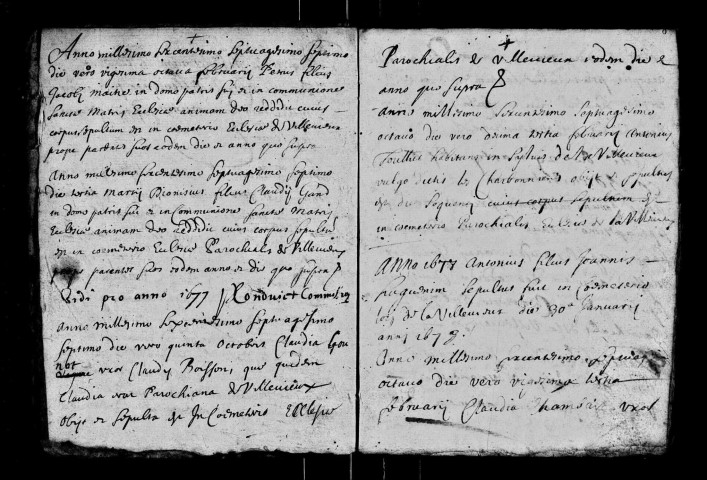 Anno millesimo sexcentesimo septuagesimo septimo
die vero vigesima octava februarij Petrus filius
Jacobi maitre in domo patris sui et in communione
Sancte Matris Eclesie animam deo reddidit cuius
corpus sepultum est in coemeterio Eclesie de Villevieux
prope parentes suos eodem die et anno quo supra
Anno millesimo sexcentesimo septuagesimo septimo
die tertia Martij Dionisius filius Claudij
in domo patris sui et in communione Sancte Matris
Eclesie animam deo reddidit cuius corpus sepultum
est in coemeterio Eclesie Parochialis de Villevieux
prope parentes suos eodem anno et die quo supra
pro anno 1677
anno millesimo sexcentesimo septuagesimo
septimo die vero quinta octobris Claudia
uxor Claudij Boisson, que quidem
Claudia uxor Parochiana de Villevieux
obijt et sepulta est In Coemeterio Ecclesie
Parochialis de Villevieux eodem die et
anno quo supra
anno millesimo sexcentesimo septuagesimo
octavo die vero decima tertia februarij Antonius
habitans in de Villevieux
vulgo dictis les Charbonnieres obijt et sepultus
est die sequenti cuius corpus sepultum est
in coemeterio Parochialis Eclesie de la Villevieux
Anno 1678 Antonius filius Joannis
sepultus fuit in Coemeterio
de la Villevieux die 30a Januarij
anni 1678
Anno millesimo sexcentesimo septuag
octavo die vero vigesima tertia
februarij Claudia uxor